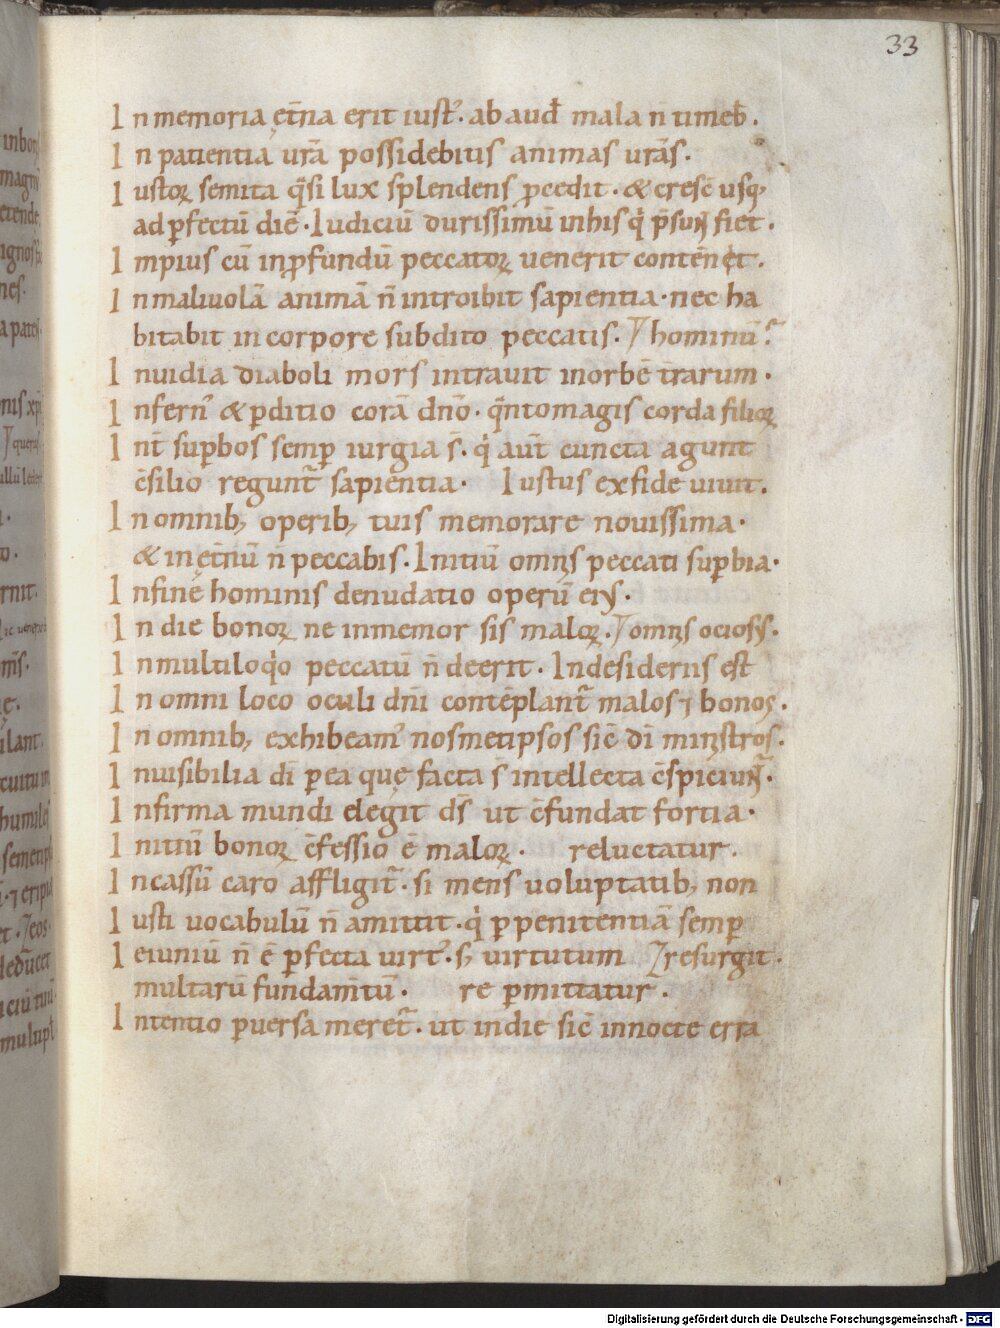 33
In memoria ęt̄na erit iust᾽. ab aud̄ mala n̄ timeb̄.
In patientia ur̄a possidebitis animas ur̄as.
Iustoꝝ semita q̄si lux splendens ꝓcedit. & cresc̄ usq,
ad ꝑfectū diē. Iudiciū durissimū in his q̇ p̄sun̄ fiet.
Impius cū in ꝓfundū peccatoꝝ uenerit contēnet.
In maliuolā animā n̄ introibit sapientia. nec ha
bitabit in corpore subdito peccatis. hominū.
Inuidia diaboli mors intrauit in orbē t̄rarum.
Infern᾽ & ꝑditio corā dn̄o. q̄nto magis corda filioꝝ
Int̄ supbos semꝑ iurgia s̄. q̇ aut̄ cuncta agunt
c̄silio regunt᷑ sapientia. Iustus ex fide uiuit.
In omnib; operib; tuis memorare nouissima.
& in ęt̄nū n̄ peccabis. Initiū omīs peccati suꝑbia.
In fine hominis denudatio operū eiꝰ.
In die bonoꝝ ne inmemor sis maloꝝ. omīs ociosꝰ.
In multiloq̇o peccatū n̄ deerit. In desideriis est
In omni loco oculi dn̄i contēplant᷑ malos ⁊ bonos.
In omnib; exhibeam᾽ nosmetipsos sic̄ dī minīstros.
Inuisibilia dī ꝑ ea quę facta s̄ intellecta c̄spiciun᷑.
Infirma mundi elegit ds̄ ut c̄fundat fortia.
Initiū bonoꝝ c̄fessio ē maloꝝ. reluctatur.
Incassū caro affligit᷑. si mens uoluptatib; non
Iusti uocabulū n̄ amittit. q̇ ꝑ penitentiā semꝑ
Ieiuniū n̄ ē ꝑfecta uirt᾽. s; uirtutum resurgit.
multarū fundam̄tū. re ꝑmittatur.
Intentio ꝑuersa meret᷑. ut in die sic̄ in nocte erra
Digitalisierung gefördert durch die Deutsche Forschungsgemeinschaft - DFG